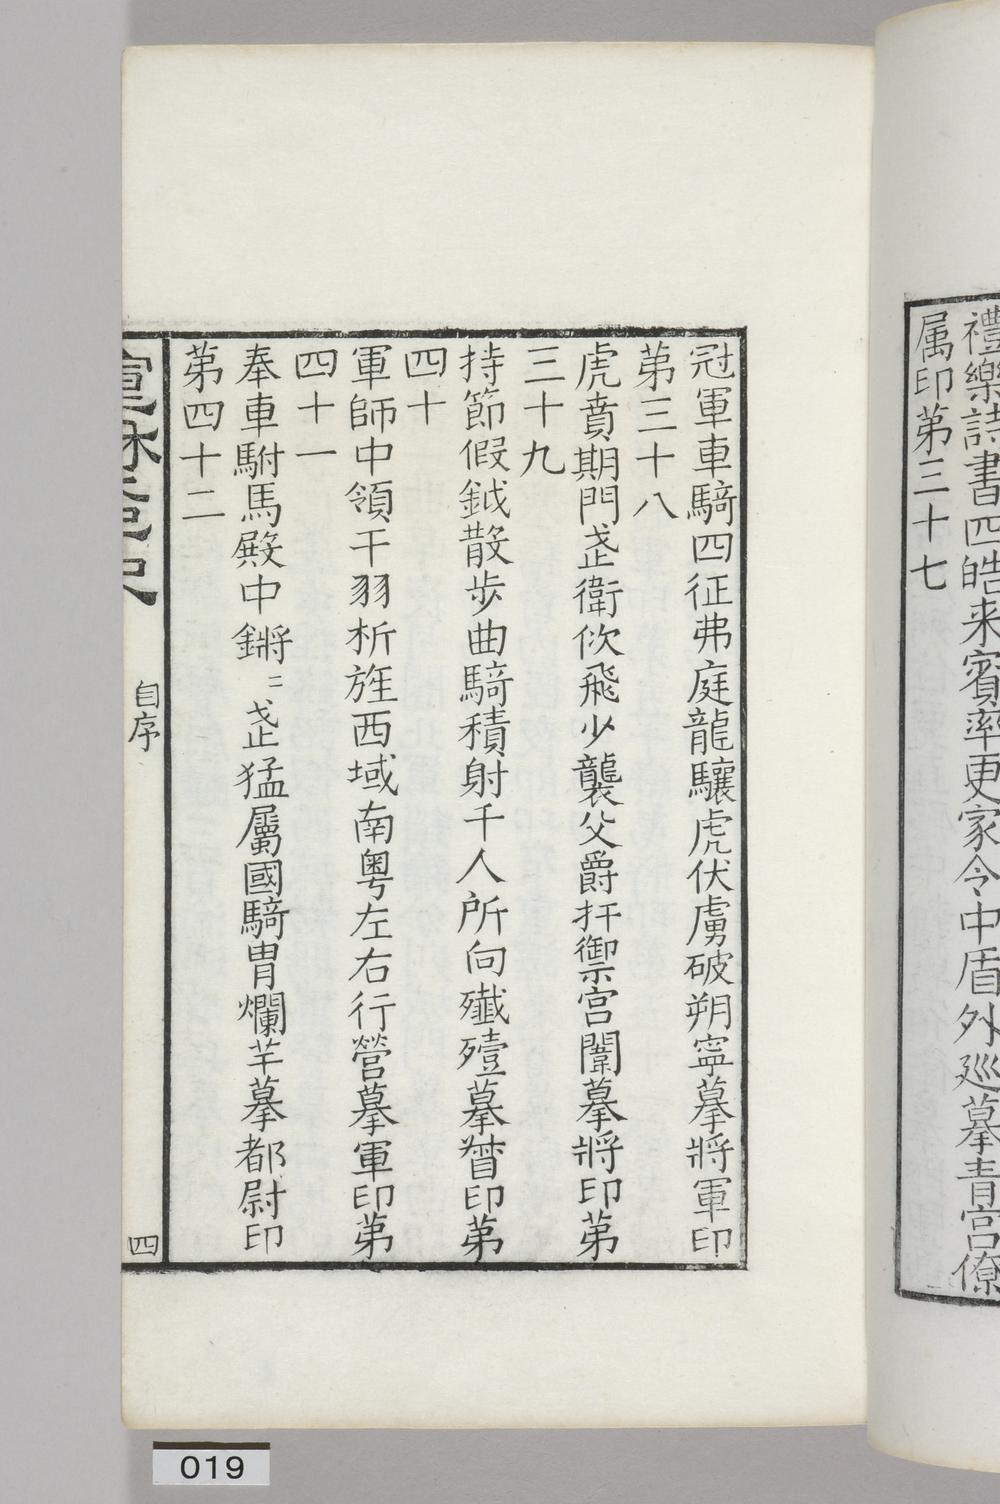 禮樂詩書四皓来賓率更家令中盾外廵摹青宮僚
属印第三十七
冠軍車騎四征弗庭龍驤虎伏虜破朔寍摹將軍印
第三十八
虎賁期門武衛佽飛少襲父爵扞禦宫闈摹將印第
三十九
持節假鉞散步曲騎積射千人所向殲殪摹督印第
四十
軍師中領干羽析旌西域南粤左右行營摹軍印第
四十一
奉車駙馬殿中鏘二武猛屬國騎胃爛羊摹都尉印
第四十二
自序
四
019